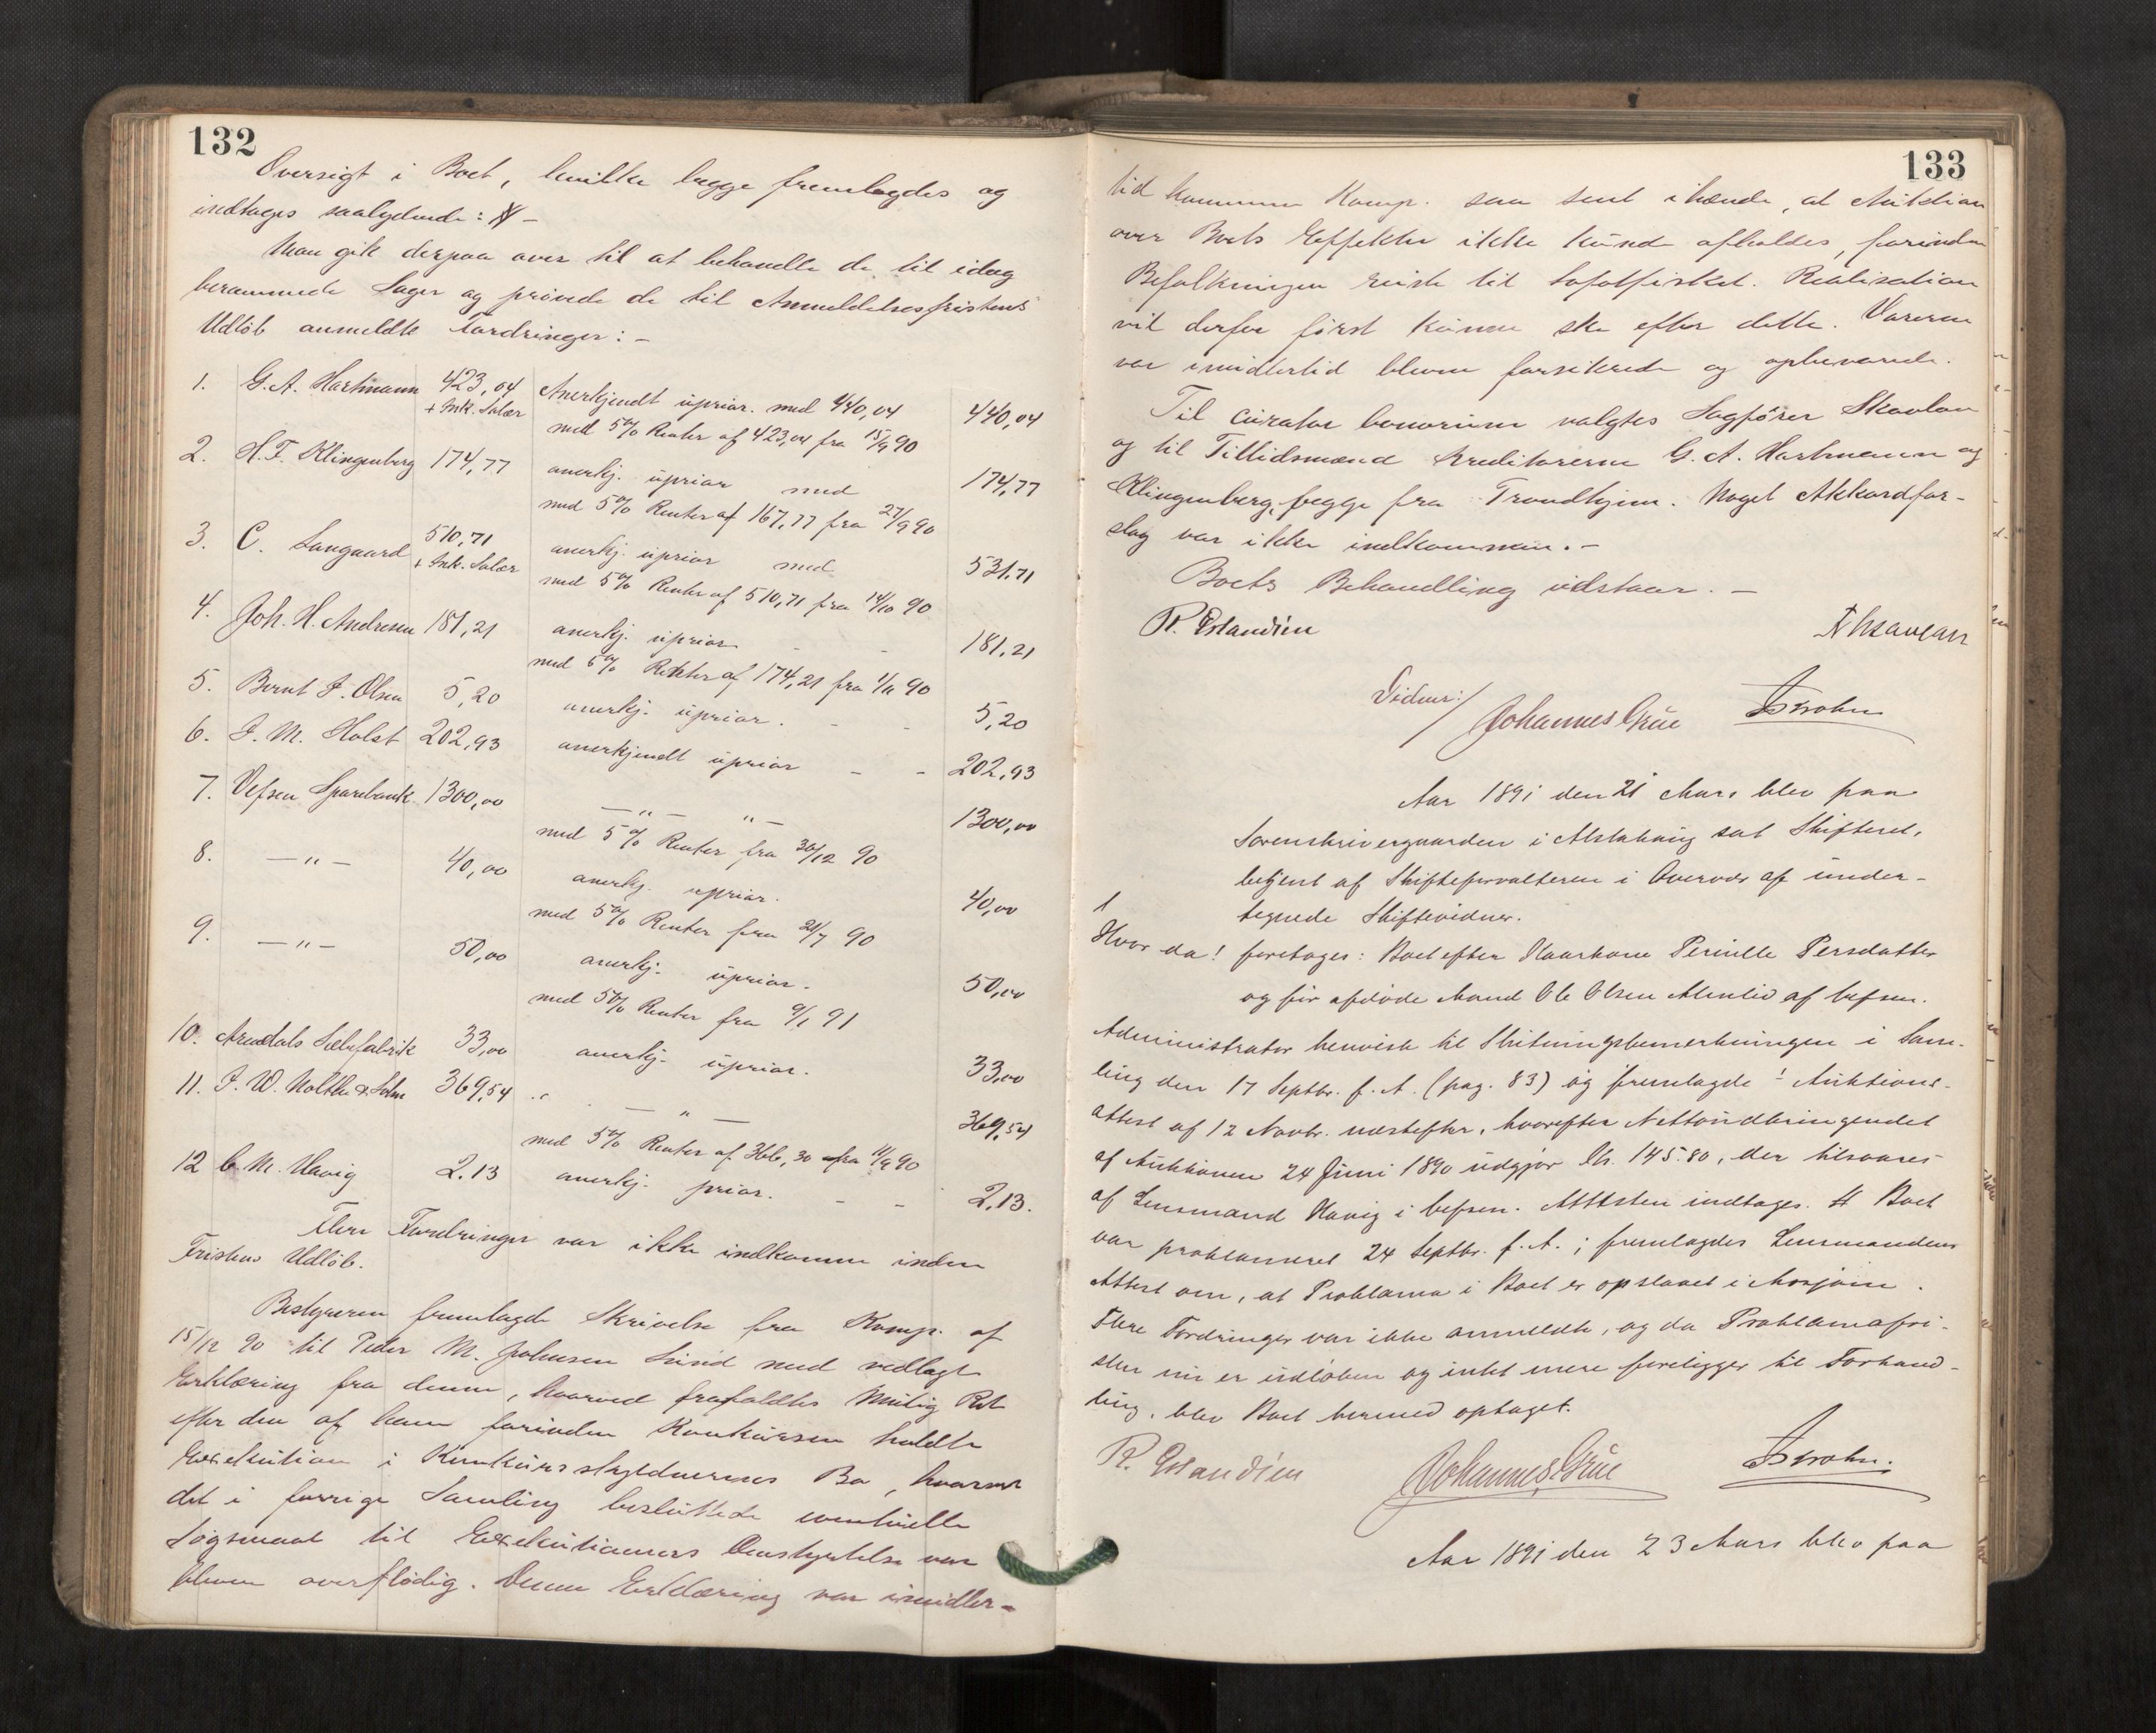 132
Oversigt i Boet, hvilke begge fremlagdes og
indtages saalydende: # –
Man gik derpaa over til at behandle de til idag
berammede Sager og prövede de til Anmeldelsesfristens
Udlöb anmeldte Fordringer: –
1. G. A. Hartmann 423,04 + Ink. Salær Anerkjendt uprior. med 440,04 440,04
med 5% Renter af 423,04 fra 15/9 90
2. H. F. Klingenberg 174,77 anerkj. uprior med 174,77
med 5% Renter af 167,77 fra 27/9 90
3. C. Langaard 510,71 + Ink. Salær anerkj. uprior med 531,71
med 5% Renter af 510,71 fra 14/10 90
4. Joh. H. Andresen 181,21 anerkj. uprior - - 181,21
med 6% Renter af 174,21 fra 1/11 90
5. Bernt J. Olsen 5,20 anerkj. uprior. - - 5,20
6. J. M. Holst 202,93 anerkjendt uprior - - 202,93
7. Vefsen Sparebank 1300,00 —"— "— 1300,00
med 5% Renter fra 30/12 90
8. —"— 40,00 anerkj. uprior. 40,00
med 5% Renter fra 21/7 90
9. —"— 50,00 anerkj. uprior. 50,00
med 5% Renter fra 9/1 91
10. Arendals Sæbefabrik 33,00 anerkj. uprior. 33,00
11. J. W. Noltke & Sohn 369,54 — " — 369,54
med 5% Renter af 366,30 fra 11/9 90
12 C. M. Havig 2.13 anerkj. prior. - - 2,13.
Flere Fordringer var ikke indkomne inden
Fristens Udlöb.
Bestyreren fremlagde Skrivelse fra Komp. af
15/12 90 til Peder M. Johnsen Lund med vedlagt
Erklæring fra denne, hvorved frafaldtes mulig Ret
efter den af ham forinden Konkursen holdte
Exekution i Konkursskyldnernes Bo, hvorved
det i forrige Samling besluttede eventuelle
Sögsmaal til Exekutionens Omstyrtelse var
bleven overflödig. Denne Erklæring var imidler-
133
tid kommen Komp. saa sent ihænde, at Auktion
over Boets Effekter ikke kunde afholdes, forinden
Befolkningen reiste til Lofotfisket. Realisation
vil derfor först kunne ske efter dette. Varerne
var imidlertid blevne forsikrede og opbevarede.
Til curator bonorum valgtes Sagförer Skavlan
og til Tillidsmænd Kreditorerne G. A. Hartmann og
Klingenberg, begge fra Trondhjem. Noget Akkordfor-
slag var ikke indkommen. –
Boets Behandling udstaar. –
R. Eslandien
Vidner:/ Johannes Grüe
Aar 1891 den 21 Mars blev paa
Sorenskrivergaarden i Alstahaug sat Skifteret,
betjent af Skifteforvalteren i Overvær af under-
tegnede Skiftevidner.
Hvor da! foretages: Boet efter Kaarkone Pernille Persdatter
og för afdöde Mand Ole Olsen Alenlid af Vefsen.
Administrator henviste til Slutningsbemerkningen i Sam-
ling den 17 Septbr. f. A. (pag. 83) og fremlagde ! Auktions-
attest af 12 Novbr. næstefter, hvorefter Nettoudbringendet
af Auktionen 24 Juni 1890 udgjör Kr. 145.80, der tilsvares
af Lensmand Havig i Vefsen. Attesten indtages. # Boet
var proklameret 24 Septbr. f. A.; fremlagdes Lensmandens
Attest om, at Proklama i Boet er opslaaet i Mosjöen.
Flere Fordringer var ikke anmeldte, og da Proklamafri-
sten nu er udlöben og intet mere foreligger til Forhand-
ling, blev Boet hermed optaget.
R. Eslandien Johannes Grüe
Aar 1891 den 23 Mars blev paa